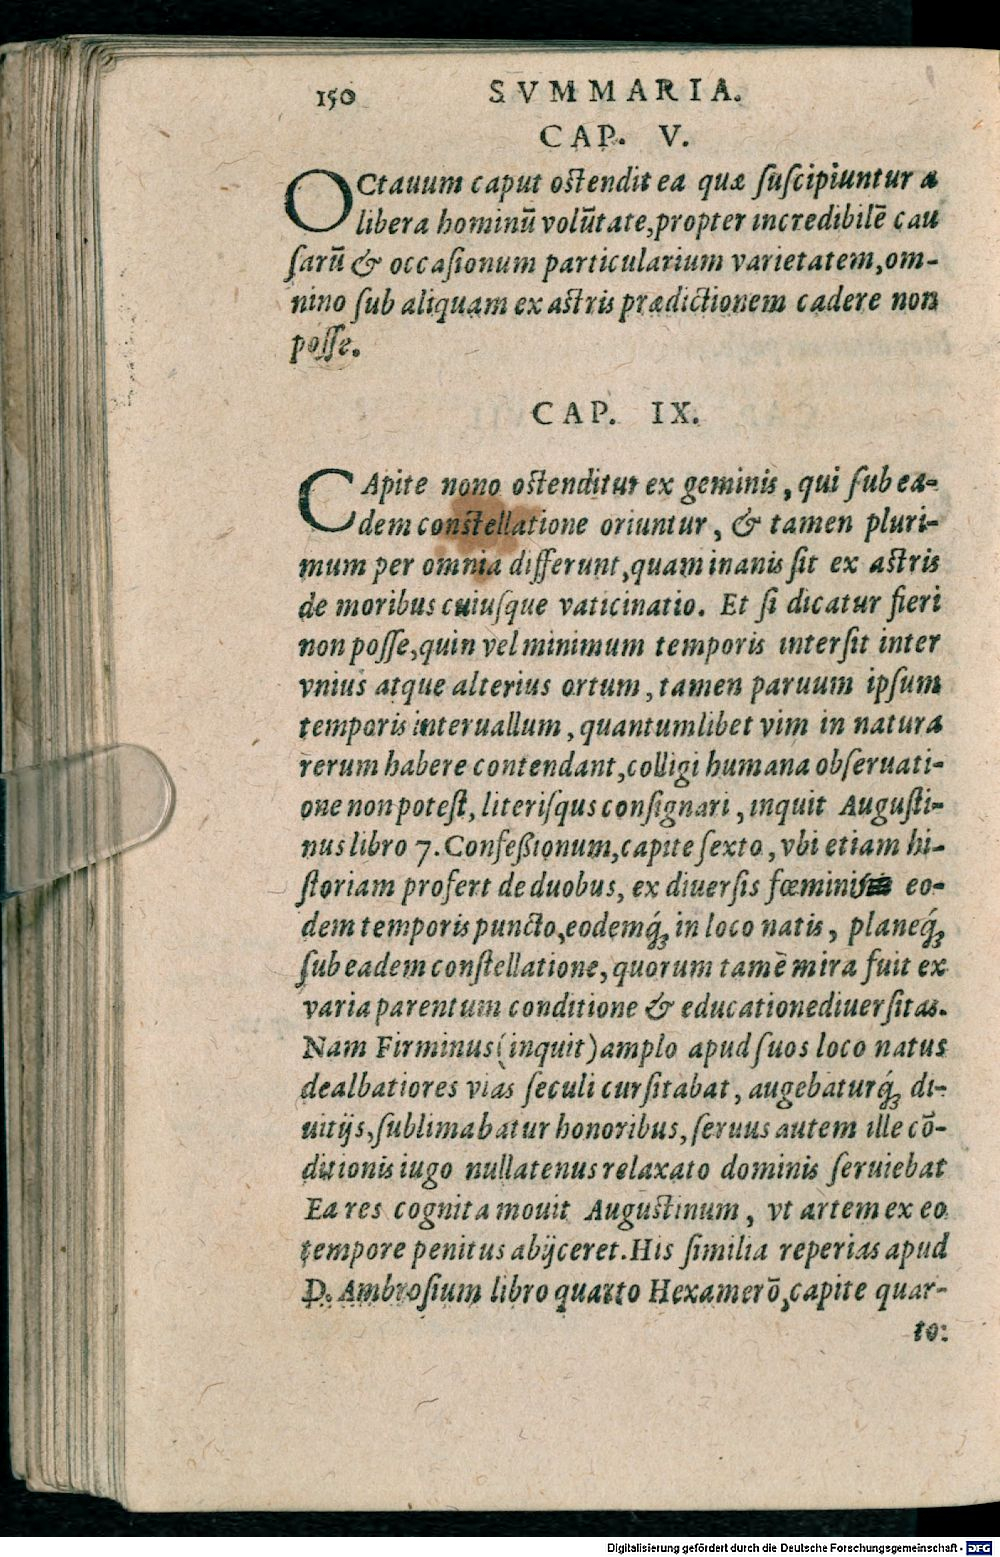 150 SVMMARIA.
CAP. V.
OCtauum caput ostendit ea quæ suscipiuntur a
libera hominū volūtate, propter incredibilē cau
sarū & occasionum particularium varietatem, om-
nino sub aliquam ex astris prædictionem cadere non
posse.
CAP. IX.
CApite nono ostenditur ex geminis, qui sub ea-
dem constellatione oriuntur, & tamen pluri-
mum per omnia differunt, quam inanis sit ex astris
de moribus cuiusque vaticinatio. Et si dicatur fieri
non posse, quin vel minimum temporis intersit inter
vnius atque alterius ortum, tamen paruum ipsum
temporis interuallum, quantumlibet vim in natura
rerum habere contendant, colligi humana obseruati-
one non potest, literisqus consignari, inquit Augusti-
nus libro 7. Confeßionum, capite sexto, vbi etiam hi-
storiam profert de duobus, ex diuersis fœminis eo-
dem temporis puncto, eodemq́; in loco natis, planeq́;
sub eadem constellatione, quorum tamē mira fuit ex
varia parentum conditione & educatione diuersitas.
Nam Firminus (inquit) amplo apud suos loco natus
dealbatiores vias seculi cursitabat, augebaturq́; di-
uitijs, sublimabatur honoribus, seruus autem ille cō-
ditionis iugo nullatenus relaxato dominis seruiebat
Ea res cognita mouit Augustinum, vt artem ex eo
tempore penitus abijceret. His similia reperias apud
D. Ambrosium libro quarto Hexamerō, capite quar-
to:
Digitalisierung gefördert durch die Deutsche Forschungsgemeinschaft - DFG